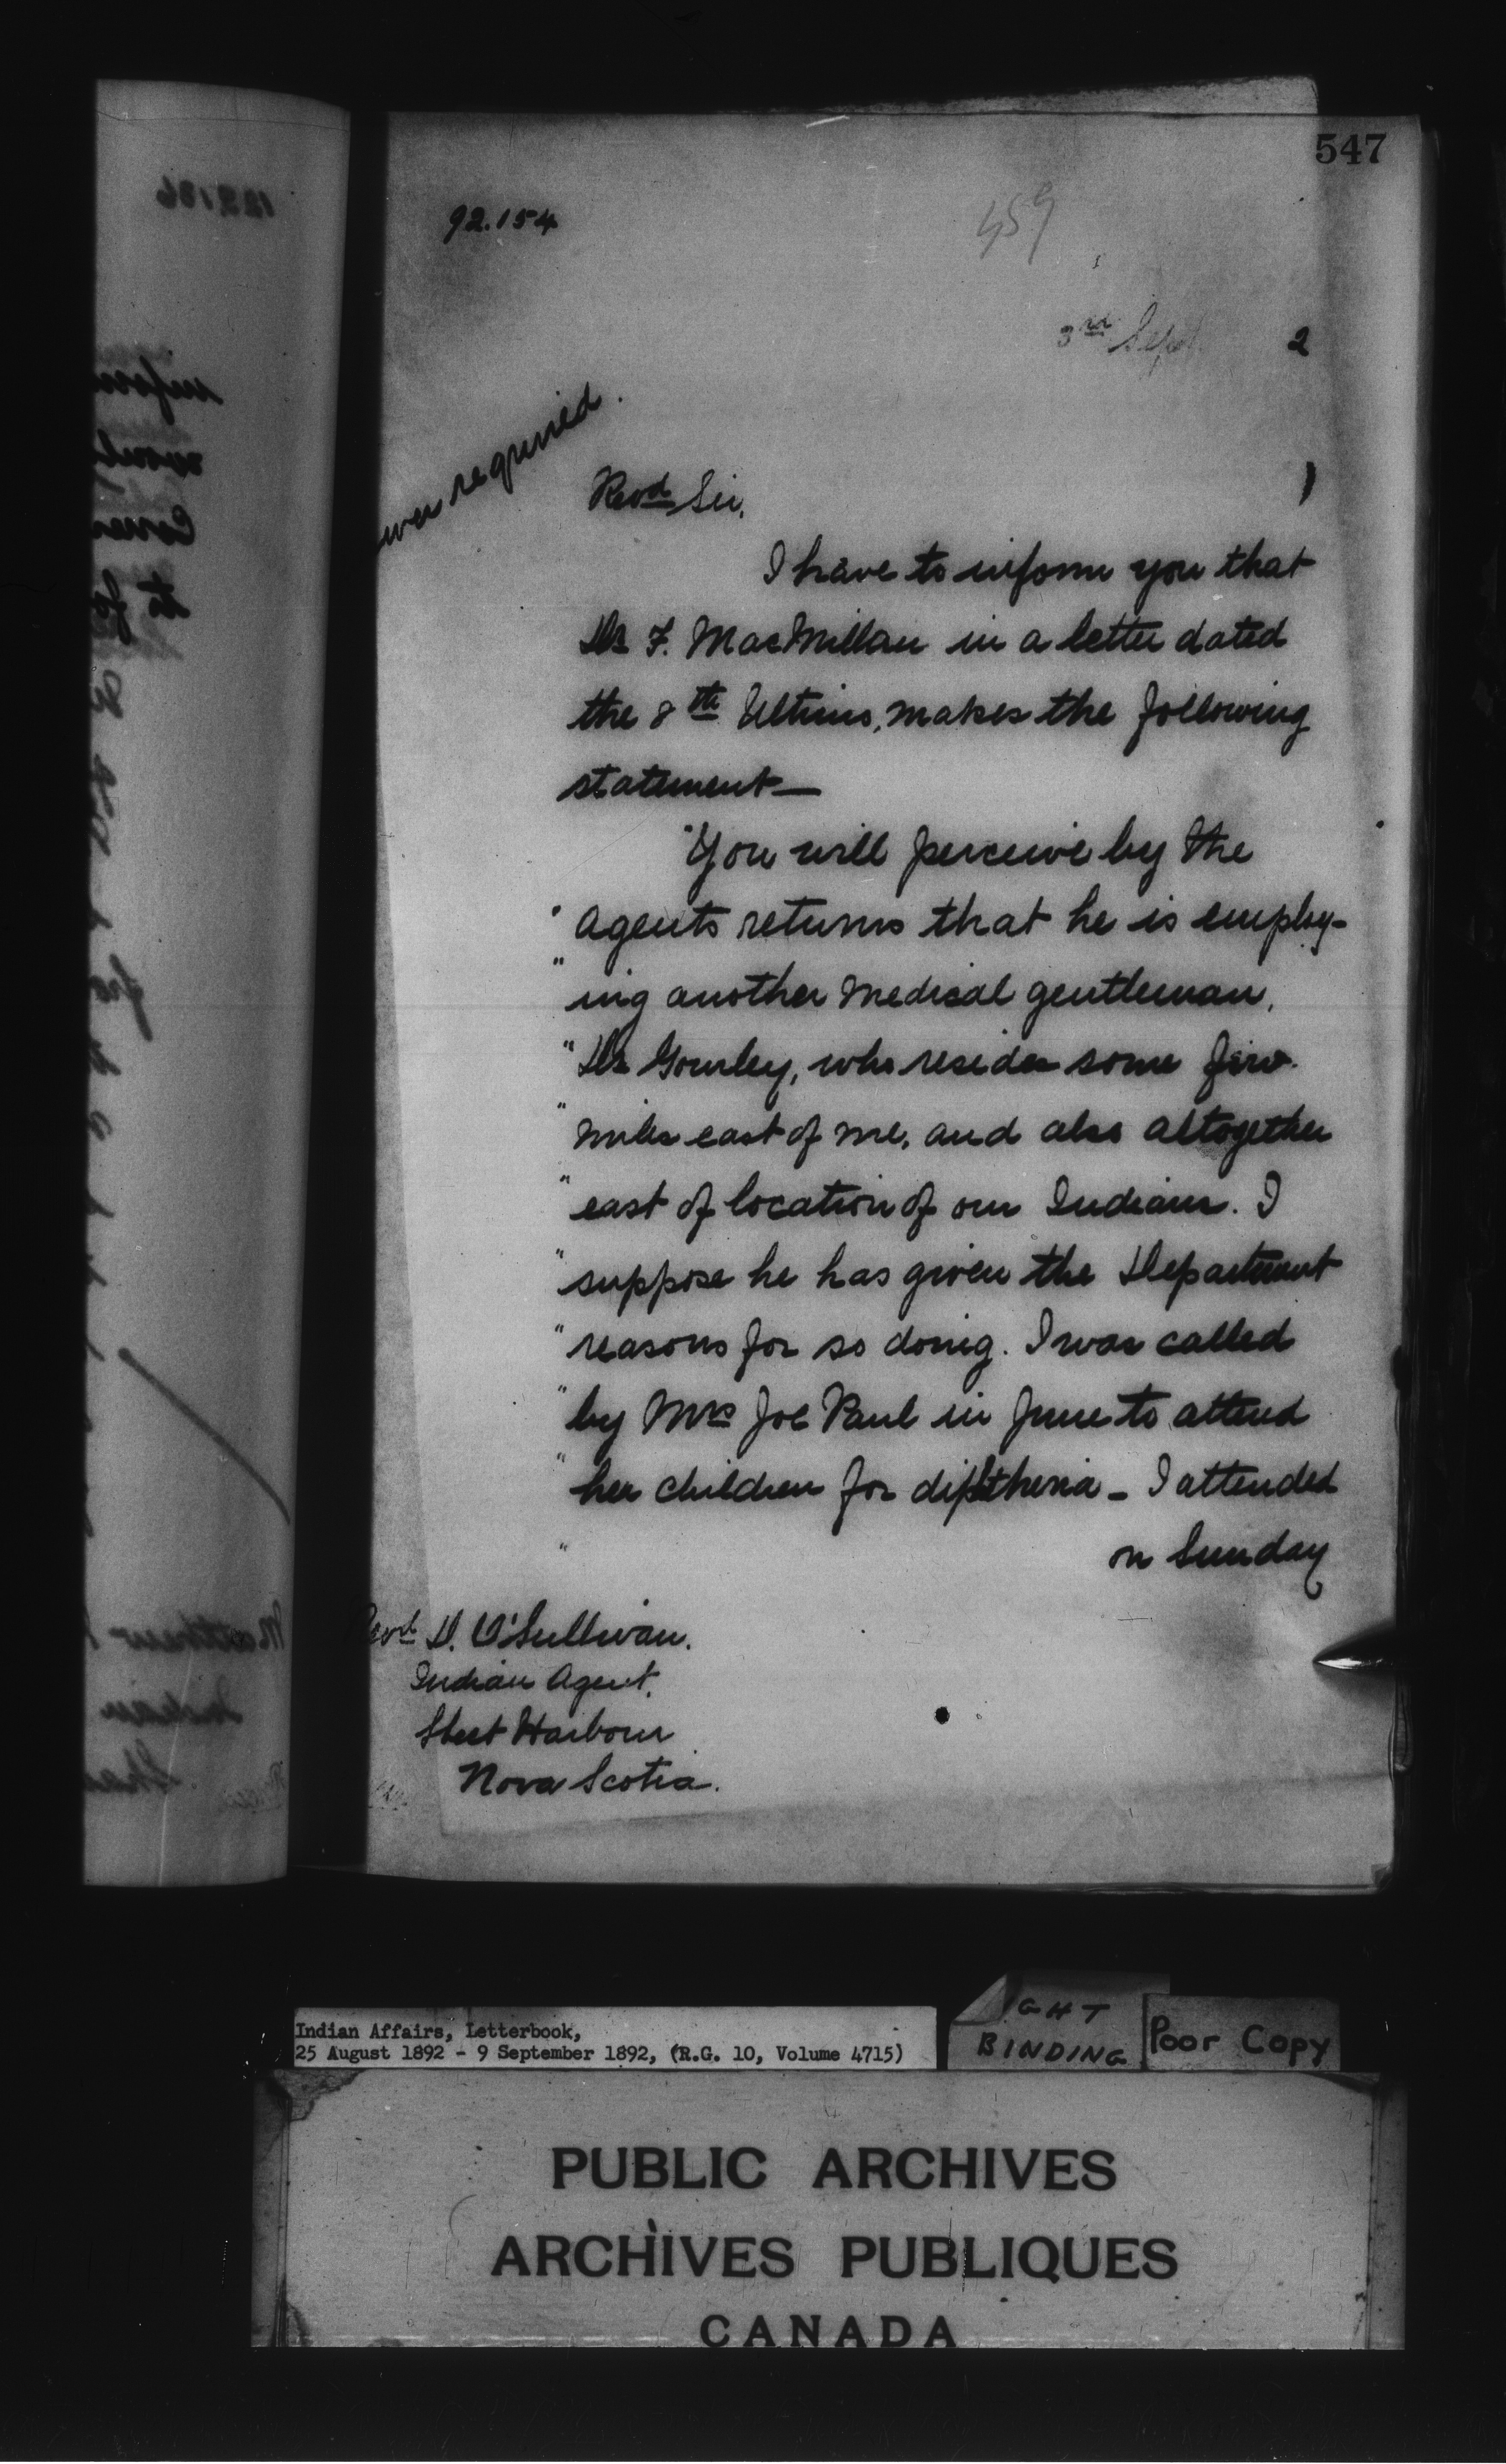 547
92.154
459
3rd Sept. 2
wer required.
Revd Sir,
I have to inform you that
Dr F. MacMillan in a letter dated
the 8th Ultimo, makes the following
statement—
"You will perceive by the
" Agents returns that he is employ-
" ing another Medical gentleman,
" Dr Gourley, who resides some few
" miles east of me, and also altogether
" east of location of our Indians. I
" suppose he has given the Department
" reasons for so doing. I was called
" by Mrs Joe Paul in June to attend
" her children for diphtheria – I attended
" on Sunday
Revd D. O'Sullivan.
Indian Agent,
Sheet Harbour
Nova Scotia.
Indian Affairs, Letterbook,
25 August 1892 - 9 September 1892, (R.G. 10, Volume 4715)
GHT
BINDING
Poor Copy
PUBLIC ARCHIVES
ARCHIVES PUBLIQUES
CANADA